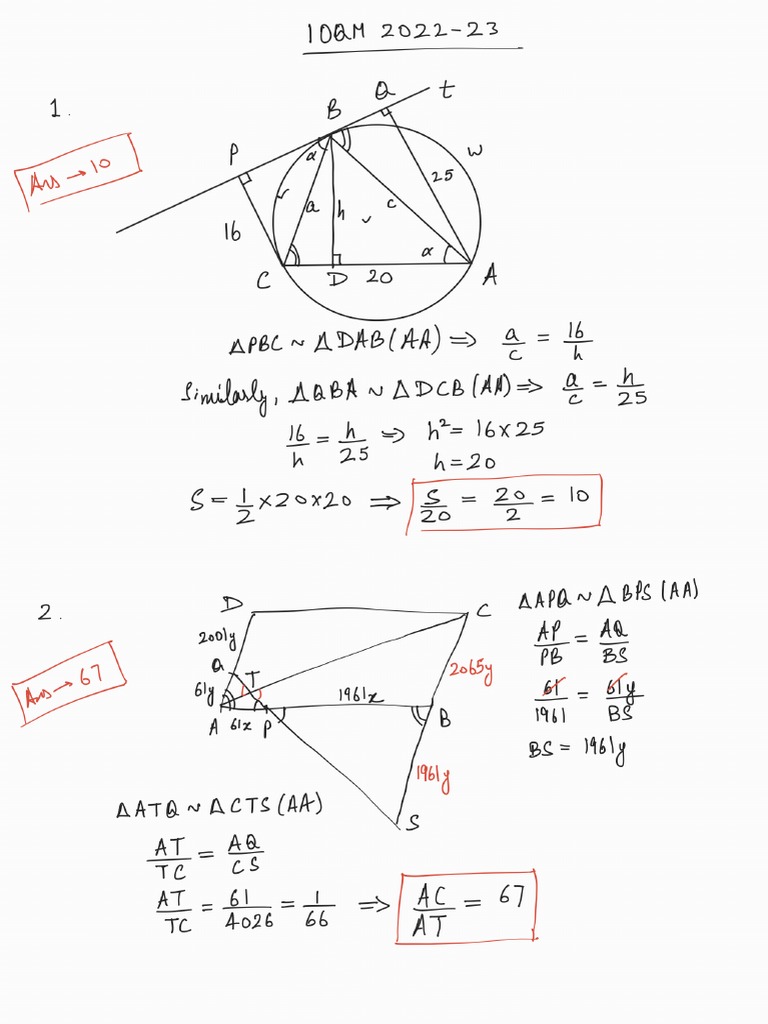 IOQM 2022-23
1.
Ans → 10
P
B
Q
t
w
α
16
a
h
c
25
α
C
D
20
A
ΔPBC ~ ΔDAB (AA) ⇒ a/c = 16/h
Similarly, ΔQBA ~ ΔDCB (AA) ⇒ a/c = h/25
16/h = h/25 ⇒ h² = 16×25
h = 20
S = 1/2 × 20 × 20 ⇒ S/20 = 20/2 = 10
2.
Ans → 67
D
C
2001y
Q
T
61y
1961x
2065y
A
61x
P
B
1961y
S
ΔAPQ ~ ΔBPS (AA)
AP/PB = AQ/BS
61/1961 = 61y/BS
BS = 1961y
ΔATQ ~ ΔCTS (AA)
AT/TC = AQ/CS
AT/TC = 61/4026 = 1/66 ⇒ AC/AT = 67